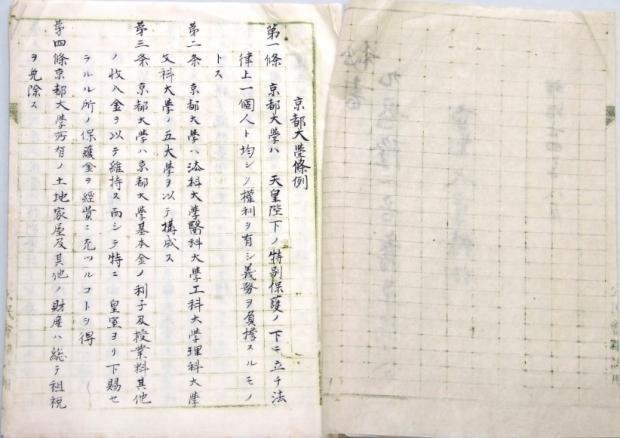 京都大學條例
第一條 京都大學ハ 天皇陛下ノ特別保護ノ下ニ立チ法
律上一個人ト均シク權利ヲ有シ義務ヲ負擔スルモノ
トス
第二条 京都大學ハ法科大學醫科大學工科大學理科大學
文科大學ノ五大學ヲ以テ構成ス
第三条 京都大學ハ京都大學基本金ノ利子及授業料其他
ノ收入金ヲ以テ維持ス而シテ特ニ 皇室ヨリ下賜セ
ラルル所ノ保護金ヲ經費ニ充ツルコトヲ得
第四條京都大學所有ノ土地家屋及其他ノ財産ハ総テ租税
ヲ免除ス